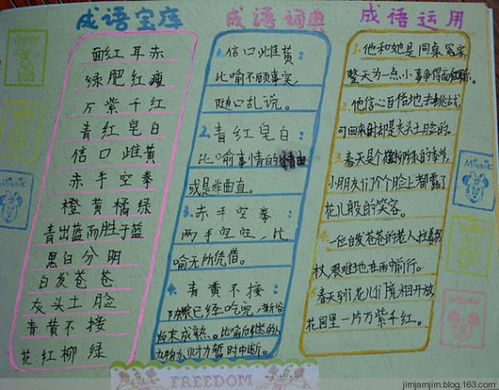 成语宝库
面红耳赤
绿肥红瘦
万紫千红
青红皂白
信口雌黄
赤手空拳
橙黄橘绿
青出蓝而胜于蓝
黑白分明
白发苍苍
灰头土脸
青黄不接
花红柳绿
成语词典
1.信口雌黄:
比喻不顾事实,
随口乱说。
2.青红皂白:
比喻事情的情由
或是非曲直。
3.赤手空拳:
两手空空,比
喻无所凭借。
4.青黄不接:
陈粮已经吃完,新谷
尚未成熟。比喻后继的人
力物力财力暂时中断。
成语运用
1.他和她是同桌
整天为一点小事争得面红耳赤。
2.他信心百倍地去挑战
可回来时却是灰头土脸的。
3.春天是个的季节,
小朋友们个个脸上都露了
花儿般的笑容。
4.一位白发苍苍的老人拄着拐
杖,艰难地在雨中前行。
5.春天到了,花儿们竞相开放,
花园里一片万紫千红。
FREEDOM
MINNIE
jimjamjim.blog.163.com